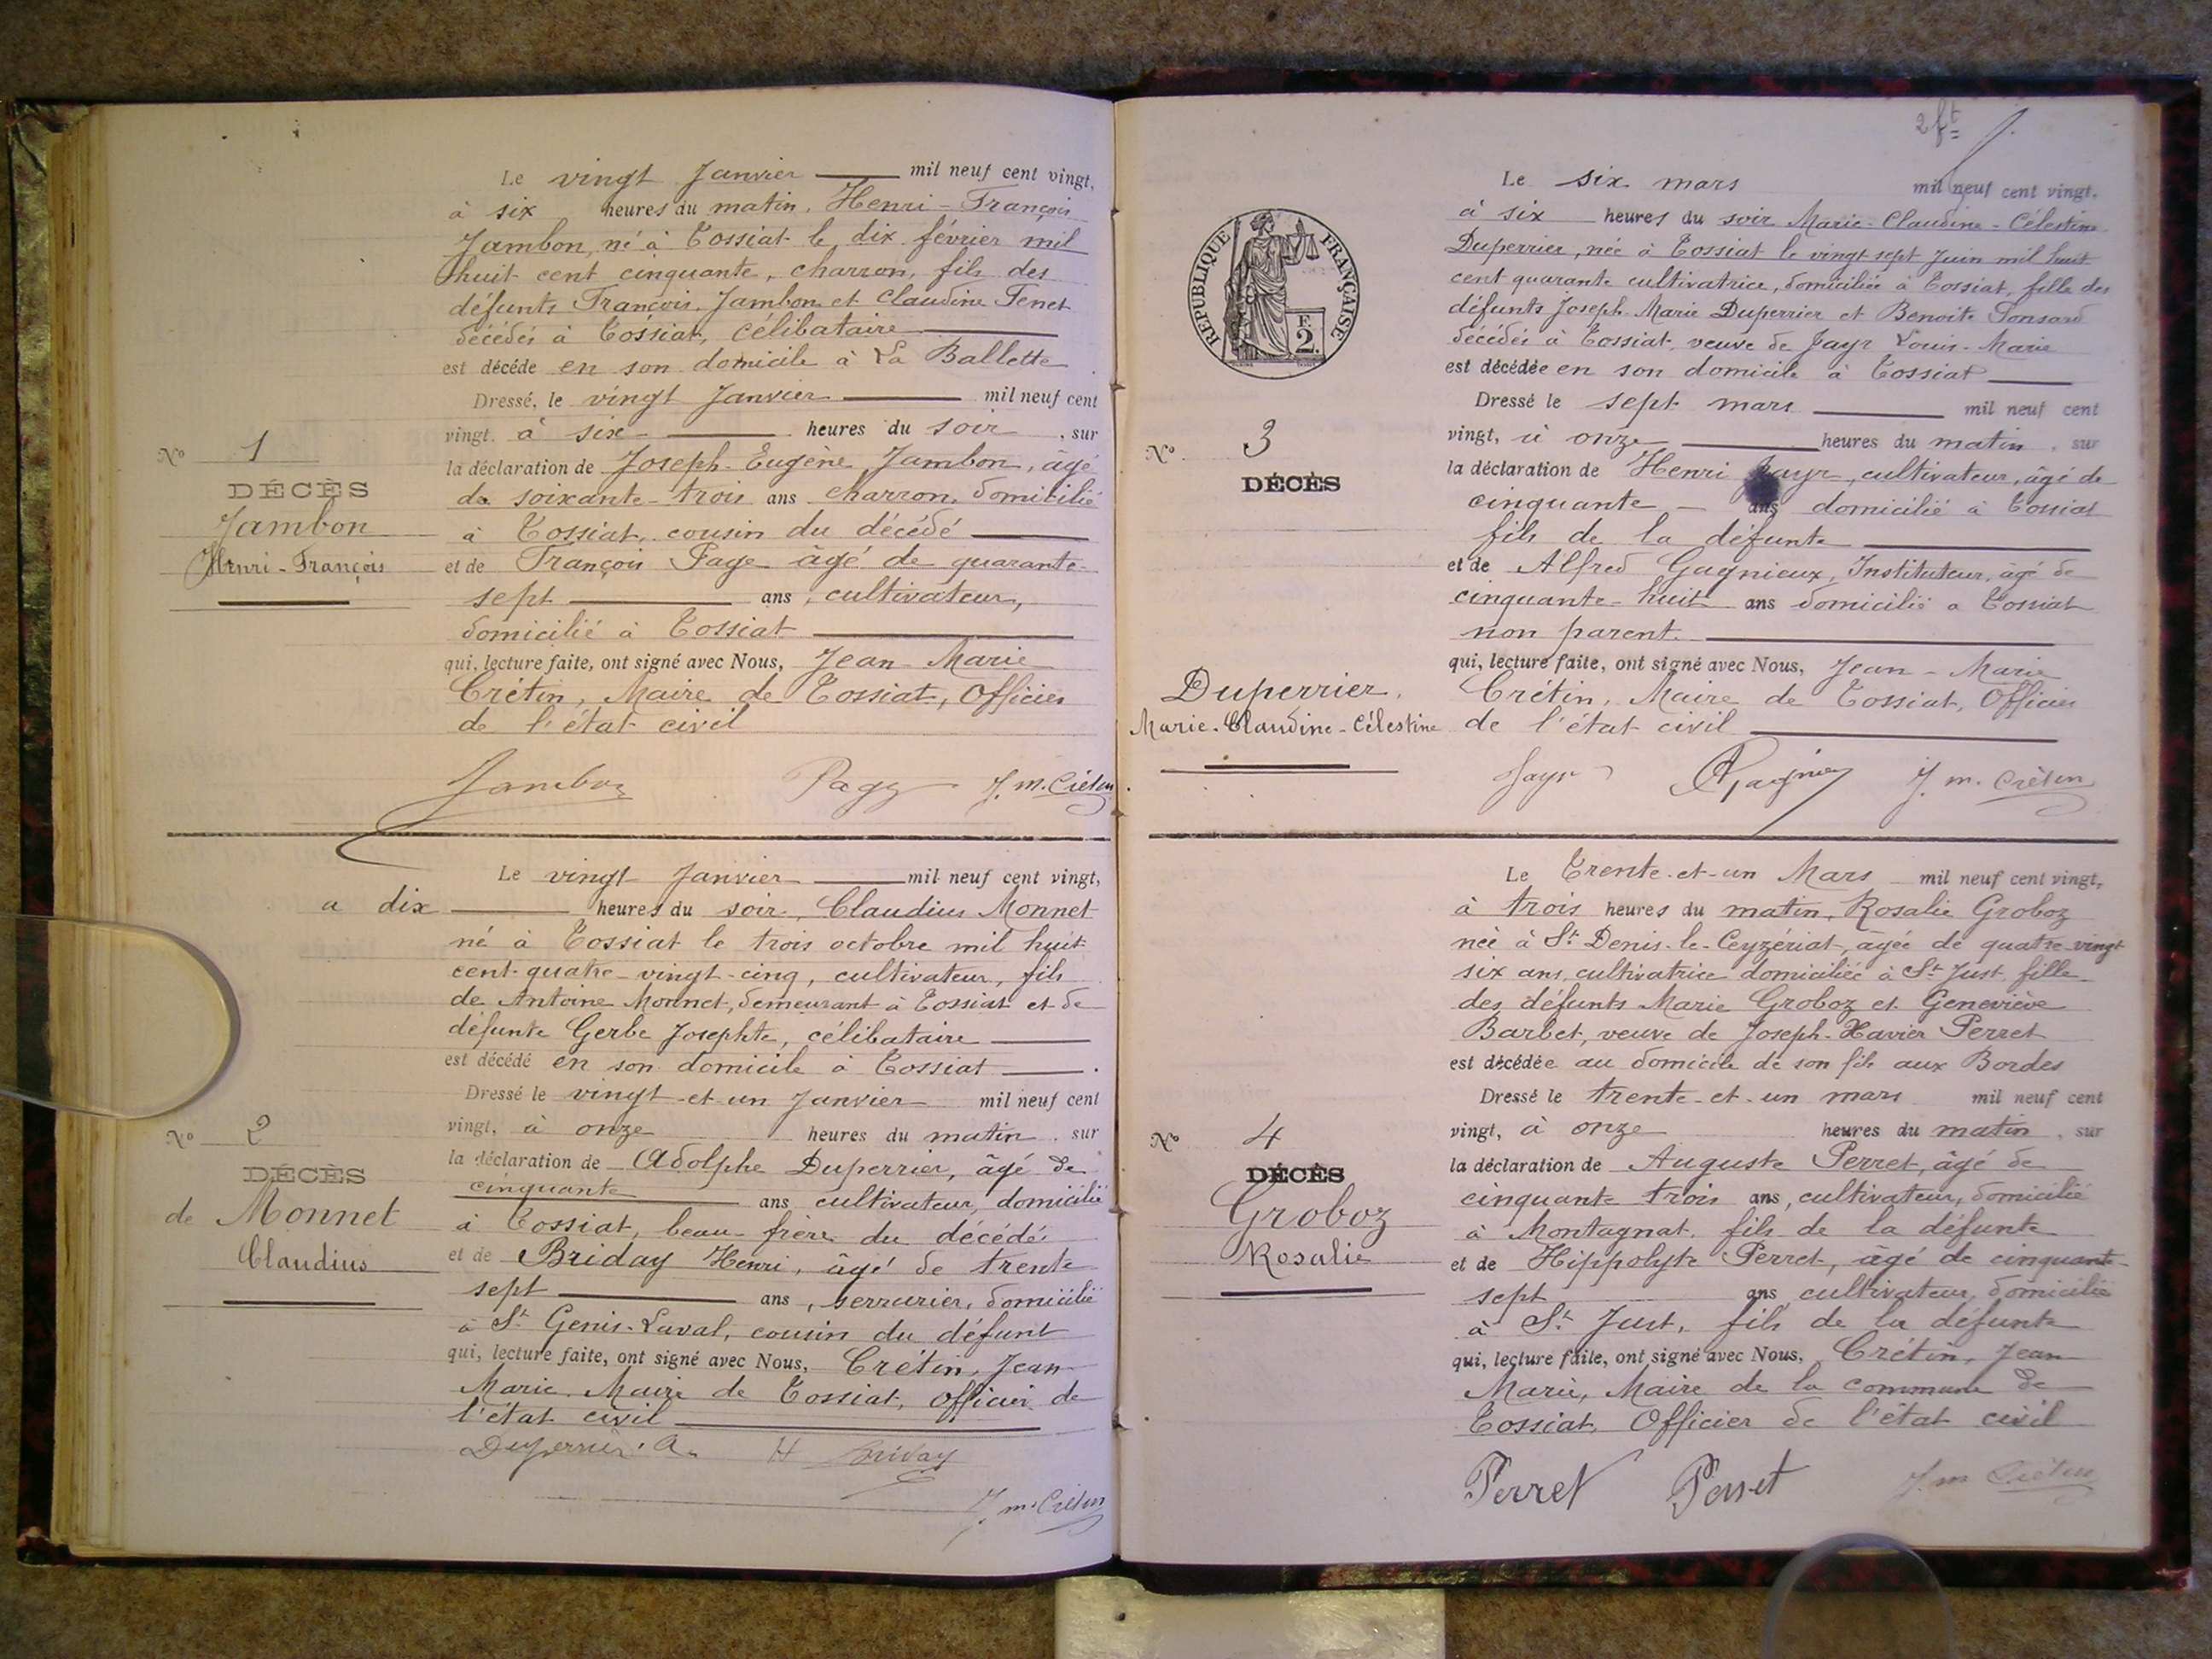 Le vingt Janvier mil neuf cent vingt,
à six heures du matin, Henri-François
Jambon, né à Tossiat le dix février mil
huit cent cinquante, charron, fils des
défunts François Jambon et Claudine Tenet
décédés à Tossiat, célibataire
est décédé en son domicile à La Ballette
Dressé, le vingt Janvier mil neuf cent
vingt, à six heures du soir, sur
la déclaration de Joseph-Eugène Jambon, âgé
de soixante-trois ans charron, domicilié
à Tossiat, cousin du décédé
et de François Page âgé de quarante-
sept ans, cultivateur,
domicilié à Tossiat
qui, lecture faite, ont signé avec Nous, Jean-Marie
Crétin, Maire de Tossiat, Officier
de l'état civil
Jambon Page J. M. Crétin
N° 1
DÉCÈS
Jambon
Henri-François
Le vingt Janvier mil neuf cent vingt,
a dix heures du soir, Claudius Monnet
né à Tossiat le trois octobre mil huit
cent-quatre-vingt-cinq, cultivateur, fils
de Antoine Monnet, demeurant à Tossiat et de
défunte Gerbe Josephte, célibataire
est décédé en son domicile à Tossiat.
Dressé le vingt-et-un Janvier mil neuf cent
vingt, à onze heures du matin, sur
la déclaration de Adolphe Duperrier, âgé de
cinquante ans cultivateur, domicilié
à Tossiat, beau-frère du décédé
et de Briday Henri, âgé de trente
sept ans, serrurier, domicilié
à St Genis-Laval, cousin du défunt
qui, lecture faite, ont signé avec Nous, Crétin, Jean
Marie, Maire de Tossiat, officier de
l'état civil
Duperrier A. H Briday
J. M. Crétin
N° 2
DÉCÈS
de Monnet
Claudius
2 ft
Le six mars mil neuf cent vingt,
à six heures du soir Marie-Claudine-Célestine
Duperrier, née à Tossiat le vingt sept Juin mil huit
cent quarante cultivatrice, domiciliée à Tossiat, fille des
défunts Joseph-Marie Duperrier et Benoite Ponsard
décédés à Tossiat, veuve de Jayr Louis-Marie
est décédée en son domicile à Tossiat
Dressé le sept mars mil neuf cent
vingt, à onze heures du matin, sur
la déclaration de Henri Jayr, cultivateur, âgé de
cinquante ans domicilié à Tossiat
fils de la défunte
et de Alfred Gagnieux, Instituteur, âgé de
cinquante-huit ans domicilié a Tossiat
non parent.
qui, lecture faite, ont signé avec Nous, Jean-Marie
Crétin, Maire de Tossiat, Officier
de l'état civil
Jayr J. M. Crétin
RÉPUBLIQUE FRANÇAISE
F.
2.
N° 3
DÉCÈS
Duperrier,
Marie-Claudine-Célestine
Le Trente-et-un Mars mil neuf cent vingt,
à trois heures du matin, Rosalie Groboz
née à St Denis-le-Ceyzériat, âgée de quatre-vingt
six ans, cultivatrice domiciliée à St Just, fille
des défunts Marie Groboz et Geneviève
Barbet, veuve de Joseph-Xavier Perret
est décédée au domicile de son fils aux Bordes
Dressé le trente-et-un mars mil neuf cent
vingt, à onze heures du matin, sur
la déclaration de Auguste Perret, âgé de
cinquante trois ans, cultivateur, domicilié
à Montagnat, fils de la défunte
et de Hippolyte Perret, âgé de cinquante-
sept ans, cultivateur, domicilié
à St Just, fils de la défunte
qui, lecture faite, ont signé avec Nous, Crétin, Jean
Marie, Maire de la commune de
Tossiat, Officier de l'état civil
Perret Perret J. M. Crétin
N° 4
DÉCÈS
Groboz
Rosalie